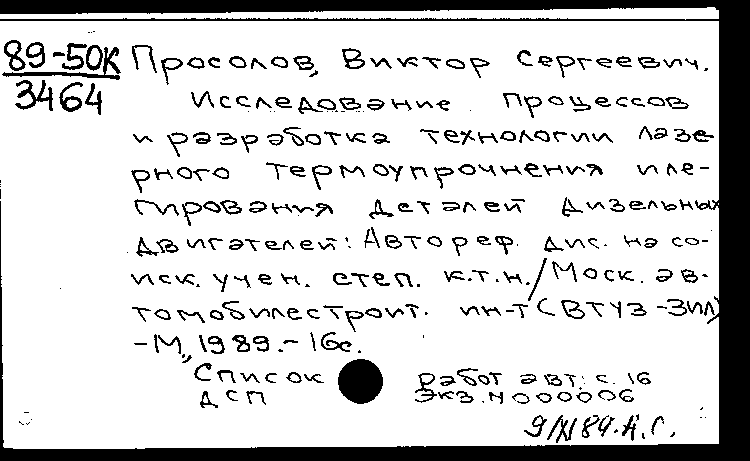 89-50К Просолов, Виктор Сергеевич.
3464 Исследование процессов
и разработка технологии лазе-
рного термоупрочнения и ле-
гирования деталей дизельных
двигателей: Автореф. дис. на со-
иск. учен. степ. к.т.н./Моск. ав-
томобилестроит. ин-т (ВТУЗ-ЗИЛ)
-М., 1989.-16с.
Список работ авт.: с. 16
ДСП Экз. N 000006
9/XI 89. А.С.